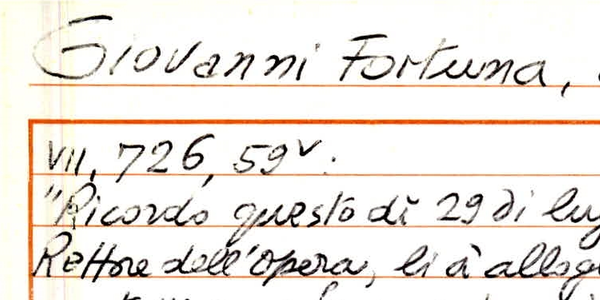 Giovanni Fortuna,
VII, 726, 59v:
"Ricordo questo dì 29 di lug
Rettore dell'Opera, li à allog